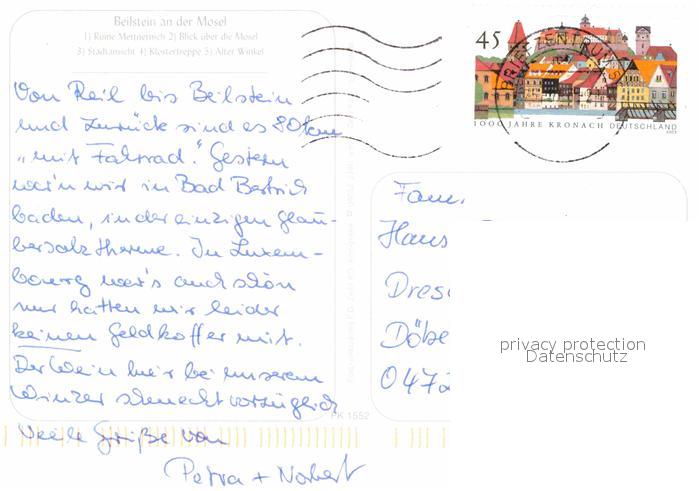 Beilstein an der Mosel
1) Ruine Metternich 2) Blick über die Mosel
3) Stadtansicht 4) Klostertreppe 5) Alter Winkel
Von Reil bis Beilstein
und zurück sind es 80 km
"mit Fahrrad". Gestern
war'n wir in Bad Bertrich
baden, in der einzigen Glau-
bersalztherme. In Luxem-
bourg war's auch schön
nur hatten wir leider
keinen Geldkoffer mit.
Der Wein hier bei unserem
Winzer schmeckt vorzüglich
Viele Grüße von
Petra + Norbert
PK 1552
45
BRIEFZENTRUM
1000 JAHRE KRONACH DEUTSCHLAND
2003
Fam.
Hans
Dres
Döbe
0472
privacy protection
Datenschutz